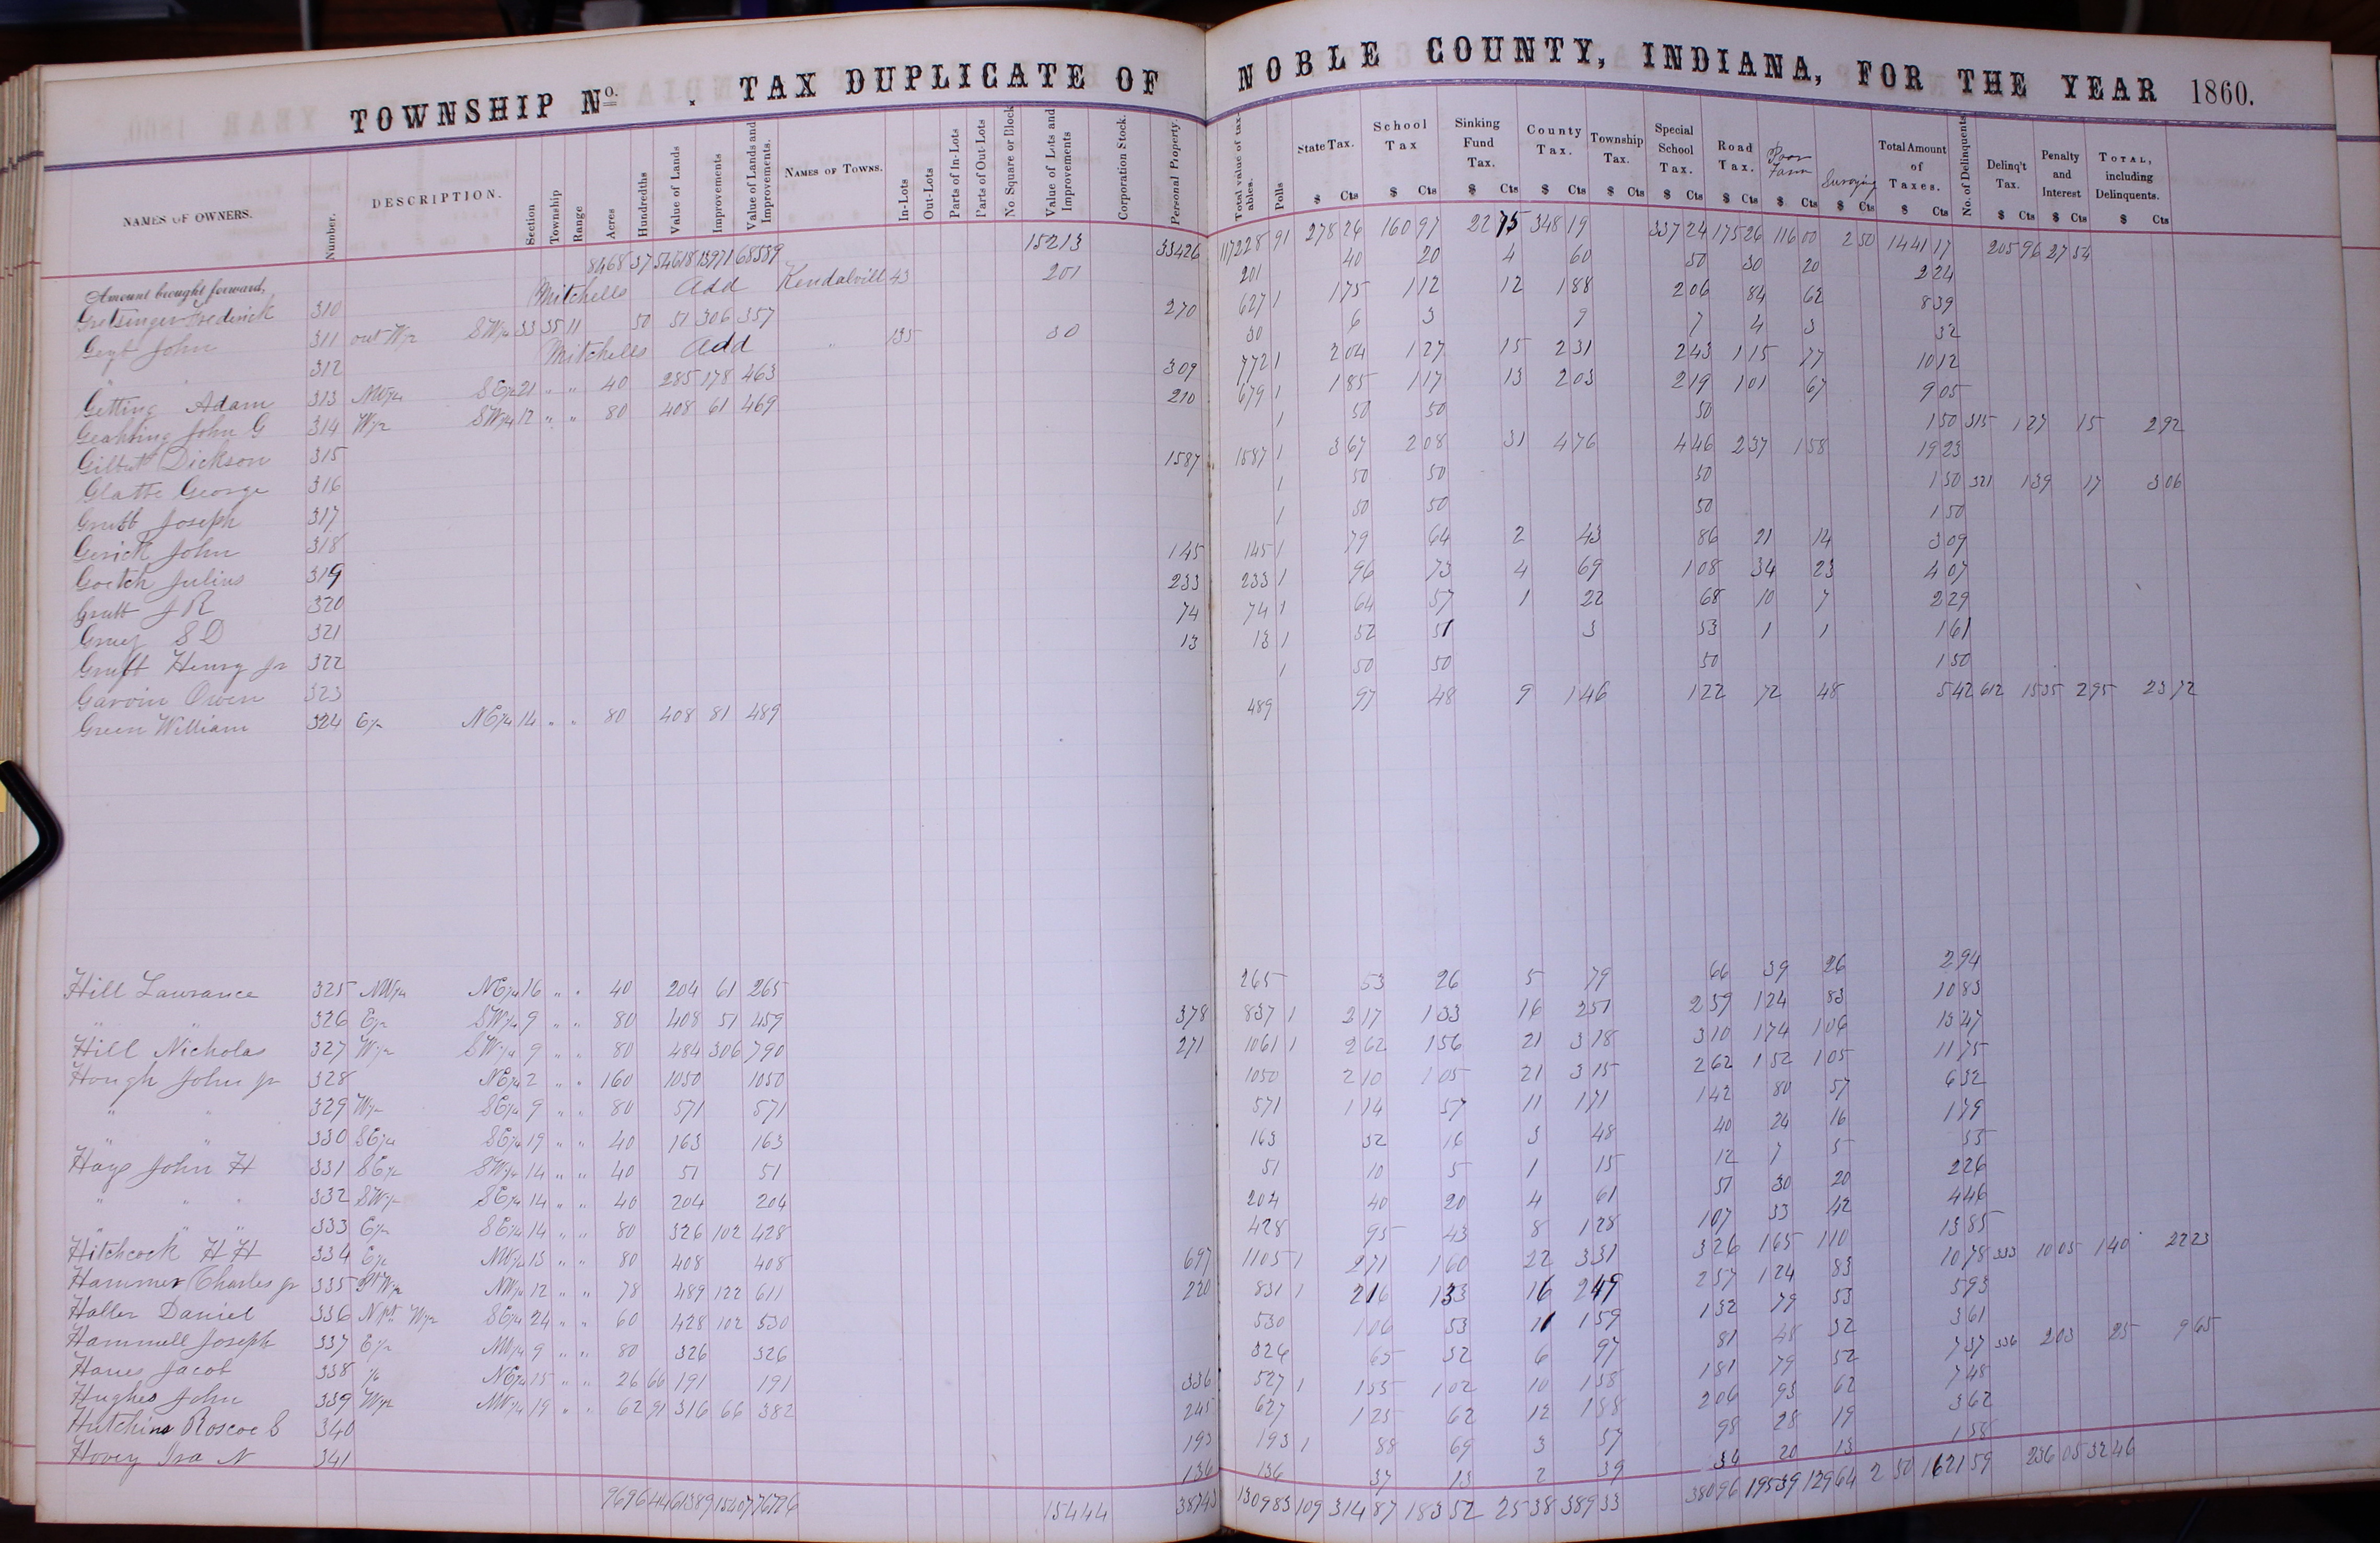 TOWNSHIP No. . TAX DUPLICATE OF NOBLE COUNTY, INDIANA, FOR THE YEAR 1860.
NAMES OF OWNERS. Number. DESCRIPTION. Section Township Range Acres Hundredths Value of Lands Improvements Value of Lands and Improvements. NAMES OF TOWNS. In-Lots Out-Lots Parts of In-Lots Parts of Out-Lots No. Square or Block Value of Lots and Improvements Corporation Stock. Personal Property. Total value of taxables. Polls State Tax. School Tax Sinking Fund Tax. County Tax. Township Tax. Special School Tax. Road Tax. Poor Farm Surveying Total Amount of Taxes. No. of Delinquents Delinq't Tax. Penalty and Interest TOTAL, including Delinquents.
$ Cts $ Cts $ Cts $ Cts $ Cts $ Cts $ Cts $ Cts $ Cts $ Cts $ Cts $ Cts $ Cts
Amount brought forward, 8468 37 54618 13971 68589 15213 33426 117228 91 278 26 160 97 22 75 348 19 337 24 175 26 116 00 2 50 1441 17 205 96 27 54
Gretsinger Frederick 310 Mitchells Add Kendalvill 43 201 201 40 20 4 60 50 30 20 2 24
Geyt John 311 out W½ SW¼ 33 35 11 50 51 306 357 270 627 1 1 75 1 12 12 1 88 2 06 84 62 8 39
" " 312 Mitchells Add " 135 30 30 6 3 9 7 4 3 32
Getting Adam 313 NW¼ SE¼ 21 " " 40 285 178 463 309 772 1 2 04 1 27 15 2 31 2 43 1 15 77 10 12
Geahting John G 314 W½ SW¼ 12 " " 80 408 61 469 210 679 1 1 85 1 17 13 2 03 2 19 1 01 67 9 05
Gilbert Dickson 315 1 50 50 50 1 50 315 1 27 15 2 92
Glatte George 316 1587 1587 1 3 67 2 08 31 4 76 4 46 2 37 1 58 19 23
Grubb Joseph 317 1 50 50 50 1 50 321 1 39 17 3 06
Gerick John 318 1 50 50 50 1 50
Goetch Julius 319 145 145 1 79 64 2 43 86 21 14 3 09
Grubb J R 320 233 233 1 96 73 4 69 1 08 34 23 4 07
S D 321 74 74 1 64 57 1 22 68 10 7 2 29
Henry Jr 322 13 13 1 52 51 3 53 1 1 1 61
Garvin Owen 323 1 50 50 50 1 50
Green William 324 E½ NE¼ 14 " " 80 408 81 489 489 97 48 9 1 46 1 22 72 48 5 42 612 15 35 2 95 23 72
Hill Lawrance 325 NW¼ NE¼ 16 " " 40 204 61 265 265 53 26 5 79 66 39 26 2 94
" " 326 E½ SW¼ 9 " " 80 408 51 459 378 837 1 2 17 1 33 16 2 51 2 59 1 24 83 10 83
Hill Nicholas 327 W½ SW¼ 9 " " 80 484 306 790 271 1061 1 2 62 1 56 21 3 18 3 10 1 74 1 06 13 47
Hough John Jr 328 NE¼ 2 " " 160 1050 1050 1050 2 10 1 05 21 3 15 2 62 1 52 1 05 11 75
" " 329 W½ SE¼ 9 " " 80 571 571 571 1 14 57 11 1 71 1 42 80 57 6 32
" " 330 SE¼ SE¼ 19 " " 40 163 163 163 32 16 3 48 40 24 16 1 79
Hays John H 331 SE¼ SW¼ 14 " " 40 51 51 51 10 5 1 15 12 7 5 55
" " " 332 SW¼ SE¼ 14 " " 40 204 204 204 40 20 4 61 51 30 20 2 26
" " " 333 E½ SE¼ 14 " " 80 326 102 428 428 95 43 8 1 28 1 07 53 42 4 46
Hitchcock H H 334 E½ NW¼ 13 " " 80 408 408 697 1105 1 2 71 1 60 22 3 31 3 26 1 65 1 10 13 85
Hammer Charles Jr 335 Pt W½ NW¼ 12 " " 78 489 122 611 220 831 1 2 16 1 33 16 2 49 2 57 1 24 83 10 78 333 10 05 1 40 22 23
Haller Daniel 336 N pt W½ SE¼ 24 " " 60 428 102 530 530 1 06 53 11 1 59 1 32 79 53 5 93
Hammell Joseph 337 E½ NW¼ 9 " " 80 326 326 326 65 32 6 97 81 48 32 3 61
Hanes Jacob 338 NE¼ 15 " " 26 66 191 191 336 527 1 1 55 1 02 10 1 58 1 81 79 52 7 37 336 2 03 25 9 65
Hughes John 339 W½ NW¼ 19 " " 62 91 316 66 382 245 627 1 25 62 12 1 88 2 06 93 62 7 48
Hutchins Roscoe S 340 193 193 1 88 69 3 57 98 28 19 3 62
Hovey Ira N 341 136 136 37 13 2 39 34 20 13 1 58
9696 44 61389 15407 76796 15444 38743 130983 109 314 87 183 52 25 38 389 33 380 96 195 39 129 64 2 50 1621 59 236 05 32 46